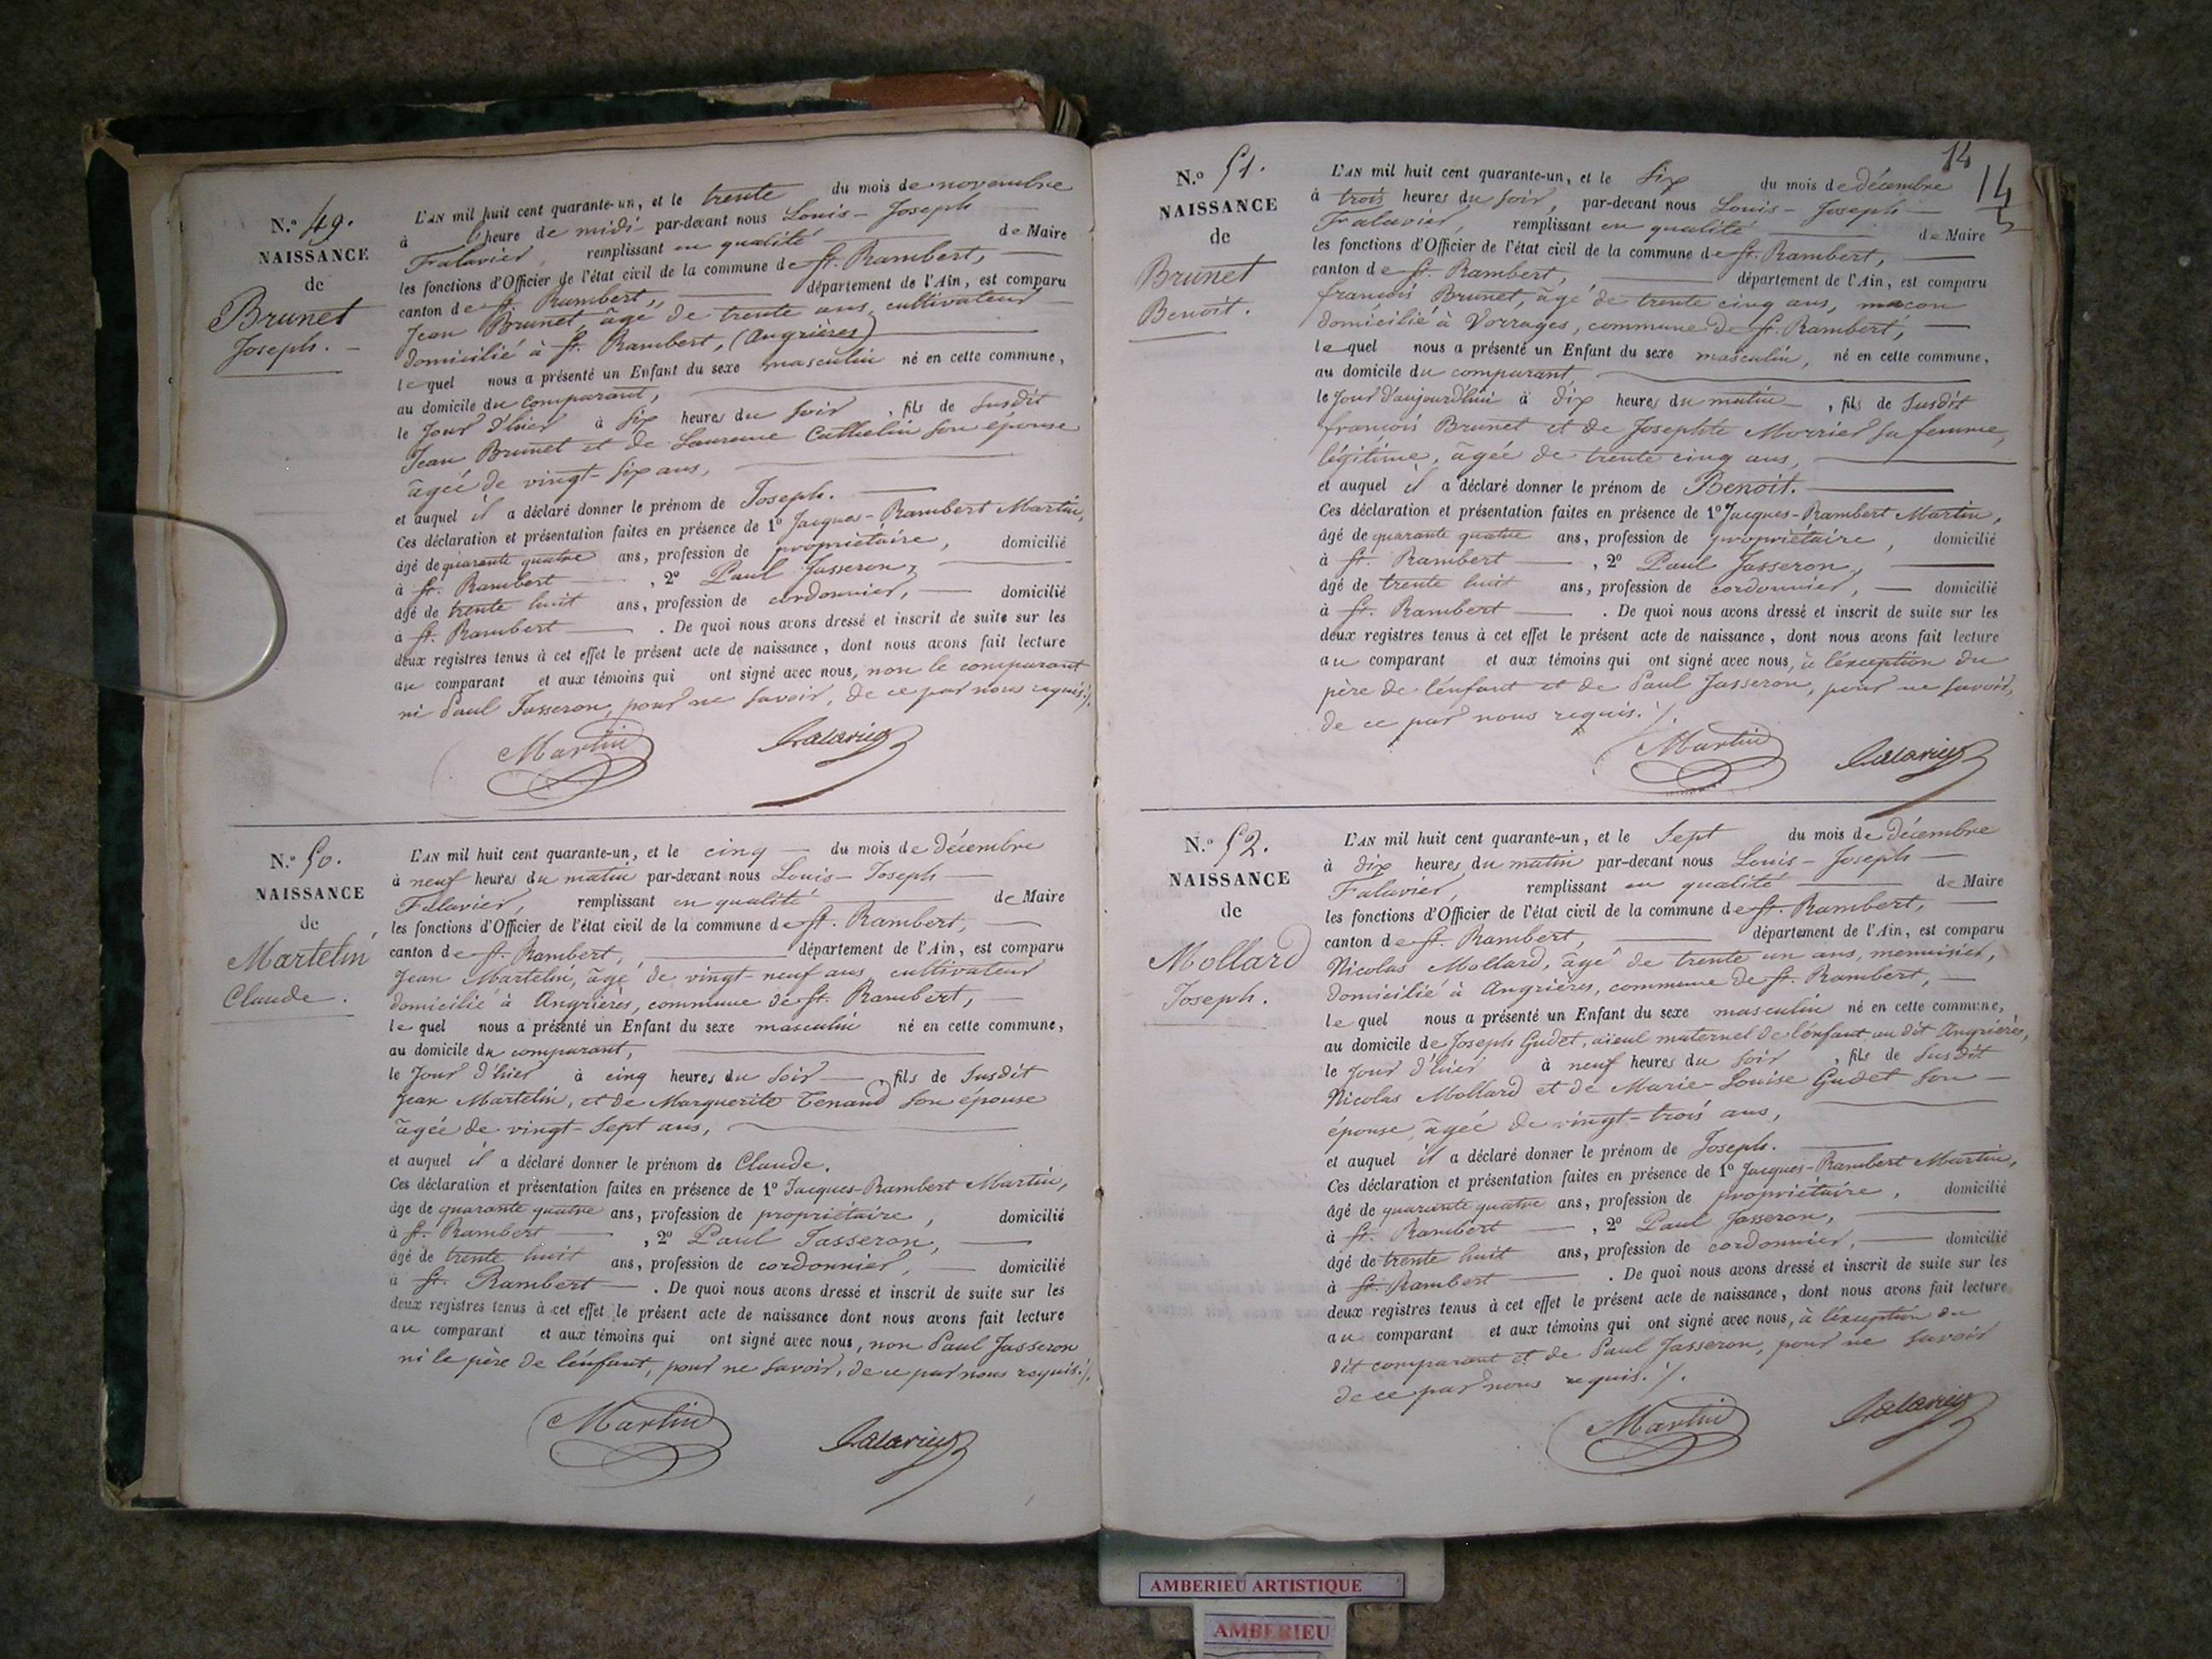 N.° 49.
NAISSANCE
de
Brunet
Joseph.
L'AN mil huit cent quarante-un, et le trente du mois de novembre
à l'heure de midi par-devant nous Louis-Joseph
Falavier, remplissant en qualité de Maire
les fonctions d'Officier de l'état civil de la commune de St. Rambert,
canton de St. Rambert, département de l'Ain, est comparu
Jean Brunet, âgé de trente ans, cultivateur
domicilié à St. Rambert, (Angrières)
lequel nous a présenté un Enfant du sexe masculin né en cette commune,
au domicile du comparant,
le jour d'hier à six heures du soir, fils de susdit
Jean Brunet et de Laurence Cathelin son épouse
âgée de vingt-six ans,
et auquel il a déclaré donner le prénom de Joseph.
Ces déclaration et présentation faites en présence de 1° Jacques-Rambert Martin,
âgé de quarante quatre ans, profession de propriétaire, domicilié
à St. Rambert, 2° Paul Jasseron,
âgé de trente huit ans, profession de cordonnier, domicilié
à St. Rambert. De quoi nous avons dressé et inscrit de suite sur les
deux registres tenus à cet effet le présent acte de naissance, dont nous avons fait lecture
au comparant et aux témoins qui ont signé avec nous, non le comparant
ni Paul Jasseron, pour ne savoir, de ce par nous requis./.
Martin Falavier
N.° 50.
NAISSANCE
de
Martelin
Claude.
L'AN mil huit cent quarante-un, et le cinq du mois de décembre
à neuf heures du matin par-devant nous Louis-Joseph
Falavier, remplissant en qualité de Maire
les fonctions d'Officier de l'état civil de la commune de St. Rambert,
canton de St. Rambert, département de l'Ain, est comparu
Jean Martelin, âgé de vingt-neuf ans, cultivateur
domicilié à Angrières, commune de St. Rambert,
lequel nous a présenté un Enfant du sexe masculin né en cette commune,
au domicile du comparant,
le jour d'hier à cinq heures du soir, fils de susdit
Jean Martelin, et de Marguerite Tenand son épouse
âgée de vingt-sept ans,
et auquel il a déclaré donner le prénom de Claude.
Ces déclaration et présentation faites en présence de 1° Jacques-Rambert Martin,
âge de quarante quatre ans, profession de propriétaire, domicilié
à St. Rambert, 2° Paul Jasseron,
âgé de trente huit ans, profession de cordonnier, domicilié
à St. Rambert. De quoi nous avons dressé et inscrit de suite sur les
deux registres tenus à cet effet le présent acte de naissance dont nous avons fait lecture
au comparant et aux témoins qui ont signé avec nous, non Paul Jasseron
ni le père de l'enfant, pour ne savoir, de ce par nous requis./.
Martin Falavier
14
14
N.° 51.
NAISSANCE
de
Brunet
Benoit.
L'AN mil huit cent quarante-un, et le six du mois de décembre
à trois heures du soir, par-devant nous Louis-Joseph
Falavier, remplissant en qualité de Maire
les fonctions d'Officier de l'état civil de la commune de St. Rambert,
canton de St. Rambert, département de l'Ain, est comparu
françois Brunet, âgé de trente cinq ans, maçon
domicilié à Vorrages, commune de St. Rambert,
lequel nous a présenté un Enfant du sexe masculin, né en cette commune,
au domicile du comparant
le jour d'aujourd'hui à dix heures du matin, fils de susdit
françois Brunet et de Josephte Morrier sa femme,
légitime, âgée de trente cinq ans,
et auquel il a déclaré donner le prénom de Benoit.
Ces déclaration et présentation faites en présence de 1° Jacques-Rambert Martin,
âgé de quarante quatre ans, profession de propriétaire, domicilié
à St. Rambert, 2° Paul Jasseron,
âgé de trente huit ans, profession de cordonnier, domicilié
à St. Rambert. De quoi nous avons dressé et inscrit de suite sur les
deux registres tenus à cet effet le présent acte de naissance, dont nous avons fait lecture
au comparant et aux témoins qui ont signé avec nous, à l'éxception du
père de l'enfant et de Paul Jasseron, pour ne savoir,
de ce par nous requis./.
Martin Falavier
N.° 52.
NAISSANCE
de
Mollard
Joseph.
L'AN mil huit cent quarante-un, et le sept du mois de décembre
à dix heures du matin par-devant nous Louis-Joseph
Falavier, remplissant en qualité de Maire
les fonctions d'Officier de l'état civil de la commune de St. Rambert,
canton de St. Rambert, département de l'Ain, est comparu
Nicolas Mollard, âgé de trente un ans, menuisier,
domicilié à Angrières, commune de St. Rambert,
lequel nous a présenté un Enfant du sexe masculin né en cette commune,
au domicile de Joseph Gudet, aïeul maternel de l'enfant au dit Angrières,
le jour d'hier à neuf heures du soir, fils de susdit
Nicolas Mollard et de Marie-Louise Gudet son
épouse, âgée de vingt-trois ans,
et auquel il a déclaré donner le prénom de Joseph.
Ces déclaration et présentation faites en présence de 1° Jacques-Rambert Martin,
âgé de quarante quatre ans, profession de propriétaire, domicilié
à St. Rambert, 2° Paul Jasseron,
âgé de trente huit ans, profession de cordonnier, domicilié
à St. Rambert. De quoi nous avons dressé et inscrit de suite sur les
deux registres tenus à cet effet le présent acte de naissance, dont nous avons fait lecture
au comparant et aux témoins qui ont signé avec nous, à l'éxception du
dit comparant et de Paul Jasseron, pour ne savoir
de ce par nous requis./.
Martin Falavier
AMBERIEU ARTISTIQUE
AMBERIEU